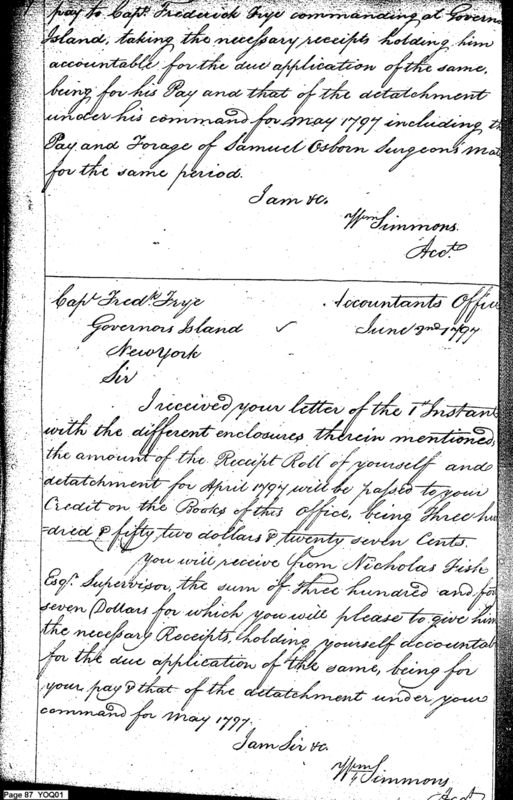 pay to Capt. Frederick Frye commanding at Govern
Island, taking the necessary receipts holding him
accountable for the due application of the same,
being for his Pay and that of the detatchment
under his command for May 1797 including th
Pay and Forage of Samuel Osborn Surgeons Mat
for the same period.
I am &c.
Wm Simmons.
Acct.
Capt Fredk Frye
Accountants Offic
Governors Island
June 2nd 1797
New York
Sir
I received your letter of the 1st Instant
with the different enclosures therein mentioned,
the amount of the Receipt Roll of yourself and
detatchment for April 1797 will be passed to your
Credit on the Books of this Office, being Three hu
=dred & fifty two dollars & twenty seven Cents.
You will receive from Nicholas Fish
Esqr. Supervisor, the sum of three hundred and for
seven Dollars for which you will please to give him
the necessary Receipts, holding yourself accountab
for the due application of the same, being for
your pay & that of the detatchment under your
command for May 1797.
I am Sir &c.
Wm Simmons
Acct
Page 87 YOQ01